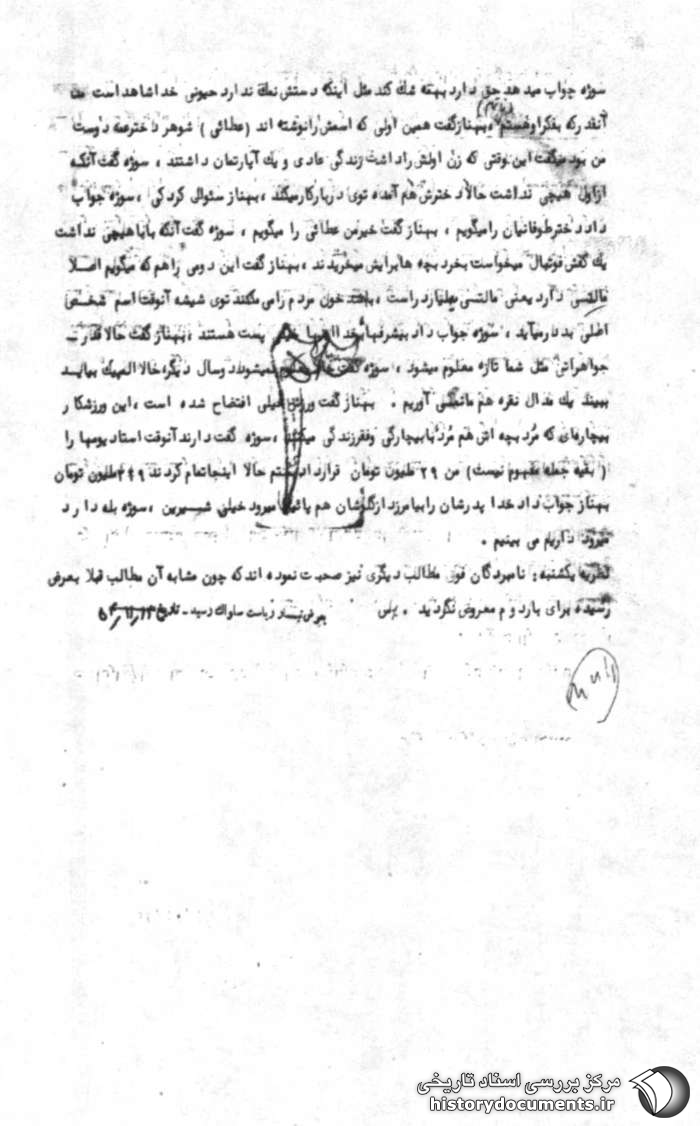 سوژه جواب میدهد حق دارد بهتر شک کند مثل اینکه دستش نمک ندارد حیونی خدا شاهد است من
آنقدر که بفکر او هستم، بهناز گفت همین اولی که اسمش را نوشته اند (عطائی) شوهر دخترعمه دوست
من بود میگفت این وقتی که زن اولش را داشت زندگی عادی و یک آپارتمان داشتند، سوژه گفت آنکه
از اول هیچی نداشت حالا دخترش هم آمده توی دربار کار میکند، بهناز سئوالی کرد کی، سوژه جواب
داد دختر طوفانیان را میگویم، بهناز گفت خیر من عطائی را میگویم، سوژه گفت آنکه بابا هیچی نداشت
یک کفش فوتبال میخواست بخرد بچه ها برایش میخریدند، بهناز گفت این دومی را هم که میگویم اصلا
مالتی دارد یعنی مالتی میلیاردر است، خون مردم را می مکند توی شیشه آنوقت اسم شخص
اصلی بد در میآید، سوژه جواب داد بیشرفها بخدا اینها پست هستند، بهناز گفت حالا قدر
جواهراتی مثل شما تازه معلوم میشود، سوژه گفت حالا معلوم نمیشود دو سال دیگر، حالا المپیک بیاید
ببیند یک مدال نقره هم ما نمی آوریم. بهناز گفت ورزش خیلی افتضاح شده است، این ورزشکار
بیچاره ای که مرد بچه اش هم مرد با بیچارگی و فقر زندگی میکنند، سوژه گفت دارند آنوقت استادیومها را
(بقیه جمله مفهوم نیست) من ۲۹ ملیون تومان قرارداد بستم حالا اینجا تمام کردند ۲۴۹ ملیون تومان
بهناز جواب داد خدا پدرشان را بیامرزد از گلوشان هم پائین میرود خیلی شیرین، سوژه بله دارد
میرود داریم می بینیم.
نظریه یکشنبه: نامبردگان فوق مطالب دیگری نیز صحبت نموده اند که چون مشابه آن مطالب قبلا بعرض
رسیده برای بار دوم معروض نگردید. بعرض تیمسار ریاست ساواک رسید - تاریخ
مرکز بررسی اسناد تاریخی
historydocuments.ir